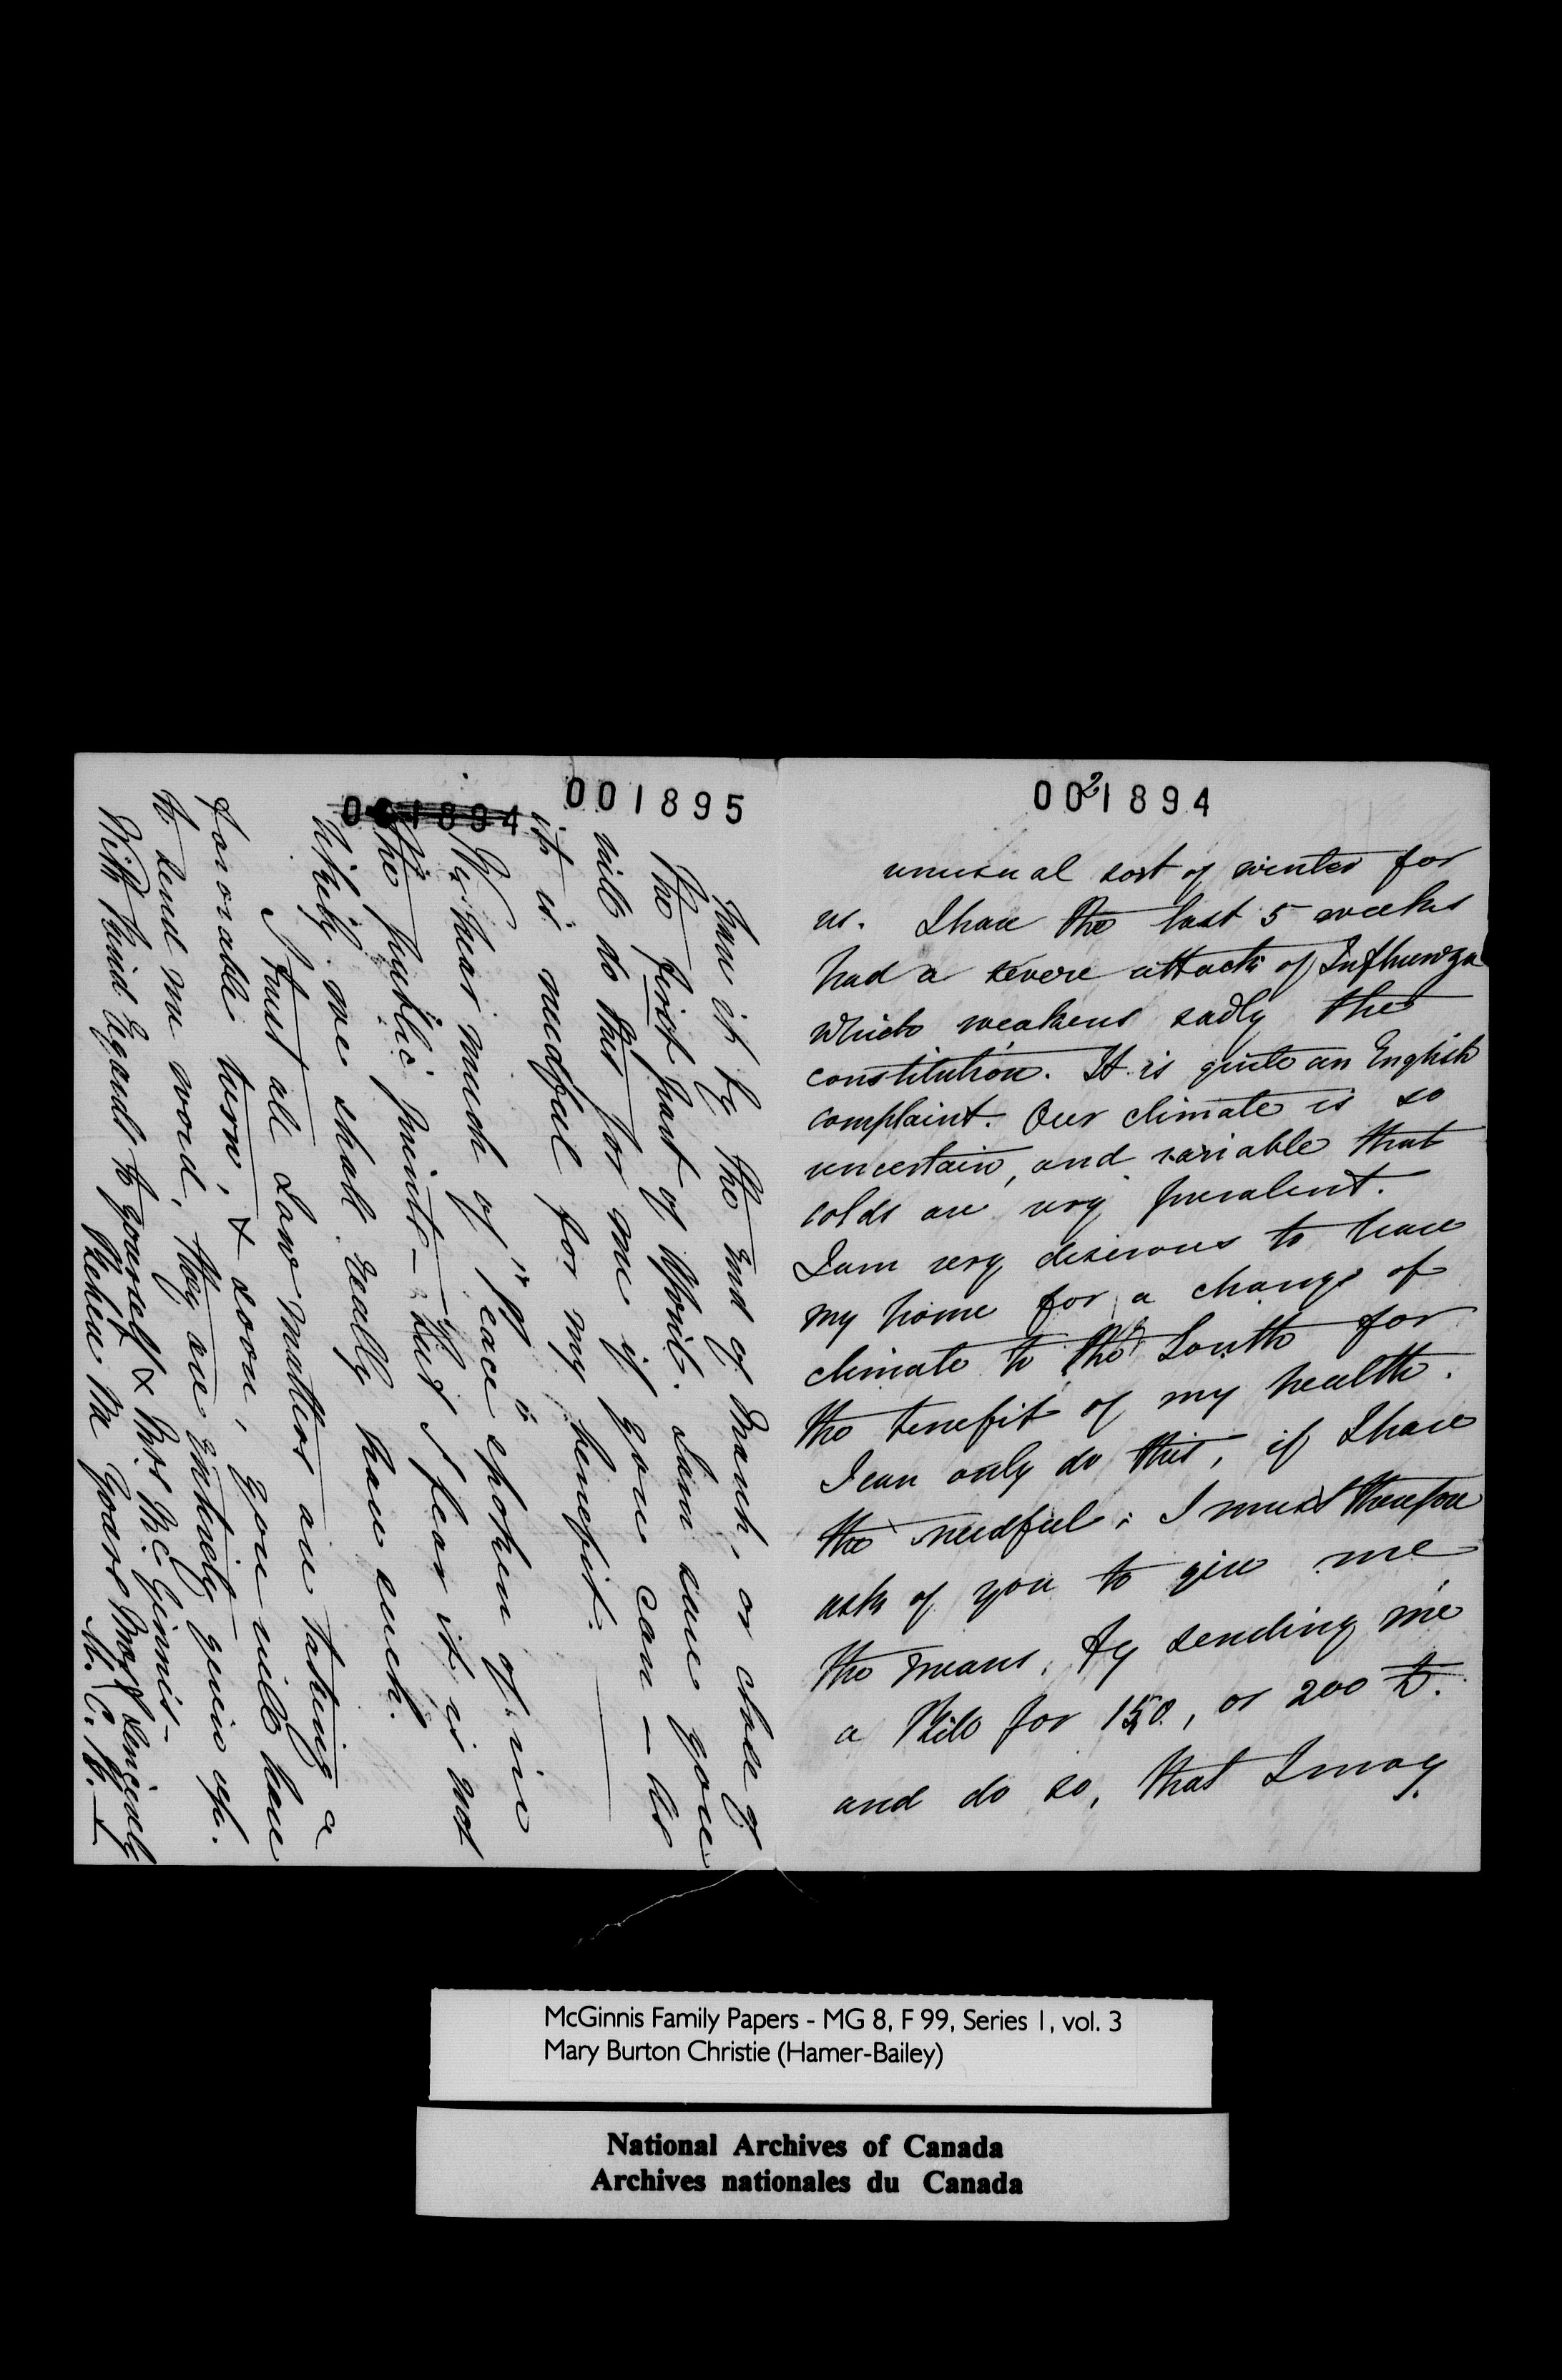 001894
2
unusual sort of winter for
us. I have the last 5 weeks
had a severe attack of Influenza
which weakens sadly the
constitution. It is quite an English
complaint. Our climate is so
uncertain, and variable that
colds are very prevalent.
I am very desirous to leave
my home for a change of
climate to the South for
the benefit of my health.
I can only do this, if I have
the needful; I must therefore
ask of you to give me
the means, by sending me
a Bill for 150, or 200 £.
and do so, that I may
001895
001894
have it by the end of March, or
the first part of April. I am sure you
will do this for me if you can – as
it is needful for my benefit.
We hear much of "peace" spoken of in
the public prints – but I fear it is not
likely we shall really have such.
I trust all Law matters are taking a
favorable turn, & soon, you will have
to send me word, they are entirely given up.
With kind regards to yourself & Mrs McGinnis –
Believe me Yours Most sincerely
M. C. B.
McGinnis Family Papers - MG 8, F 99, Series 1, vol. 3
Mary Burton Christie (Hamer-Bailey)
National Archives of Canada
Archives nationales du Canada